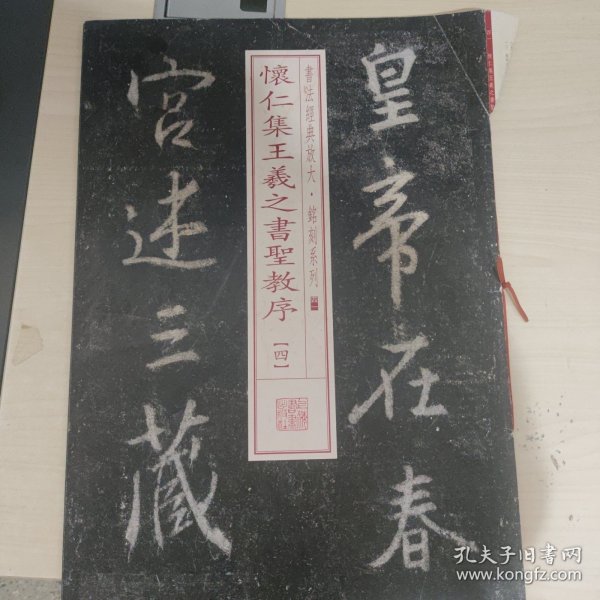 皇帝在春
宮述三藏
書法經典放大·銘刻系列
懷仁集王羲之書聖教序
【四】
孔夫子旧书网
www.kongfz.com